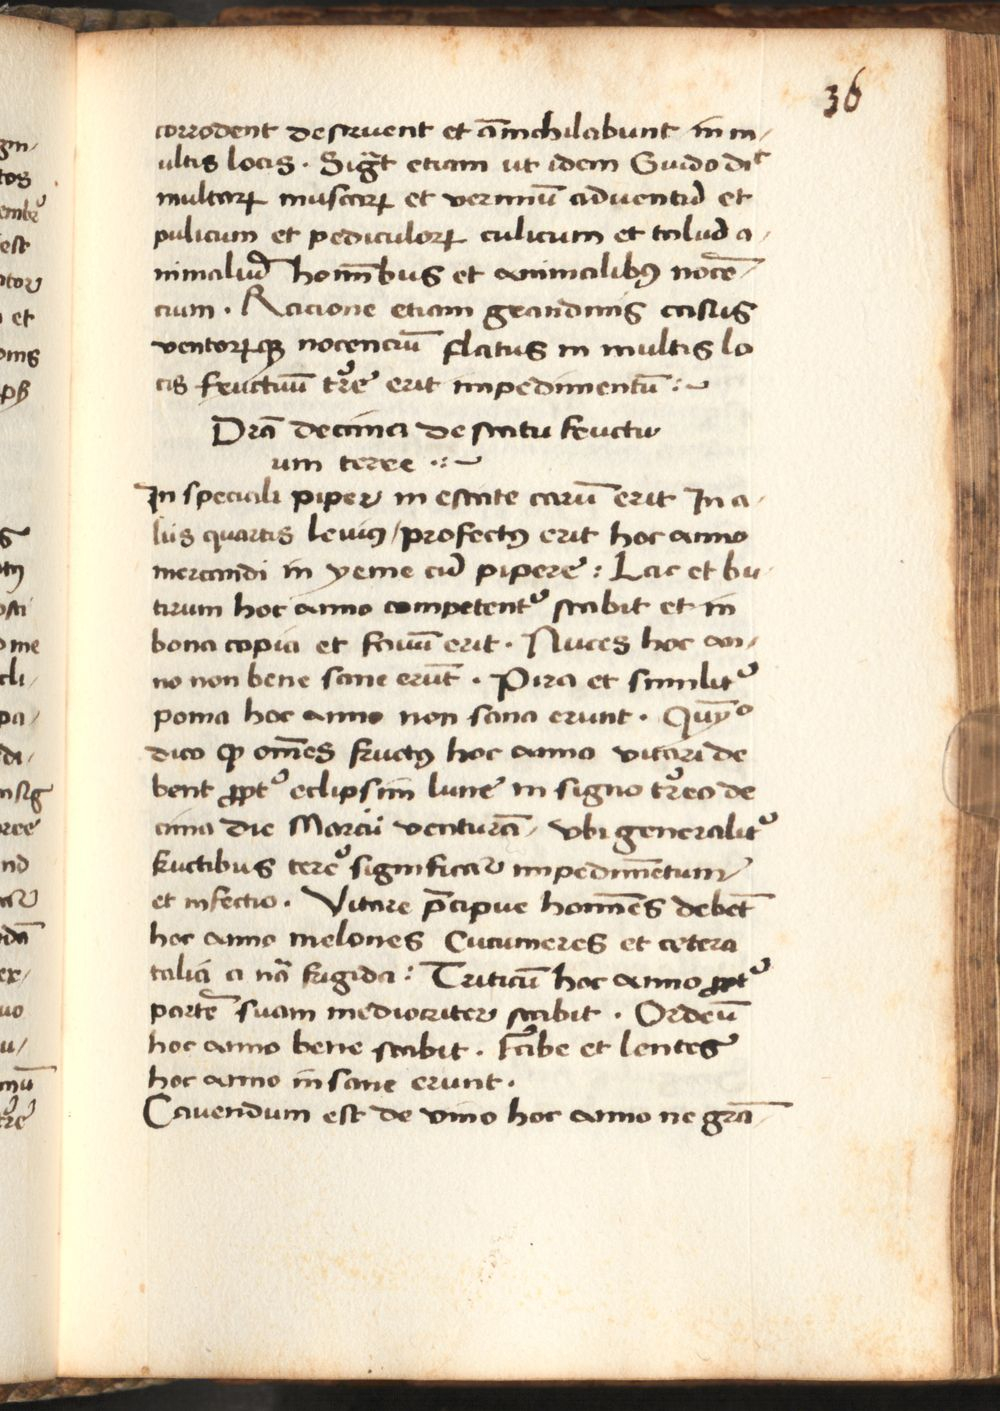 36
corrodent destruent et añichilabunt in m/
ultis locis . Sigt̄ etiam ut idem Guido dit
multorꝝ muscarꝝ et vermiū adventū et
pulicum et pediculorꝝ culicum et taliū a/
nimaliū hom̄bus et animalibꝰ nocē/
cium . Racione etiam grandinis casus
ventorꝝqꝫ nocenciū flatus in multis lo
cis fructuū tr̄e erit impedimentū :~
Dr̄a decima de statu fructu
um terre .:~
In speciali piper in estate carū erit In a/
liis quartis leviꝰ / profectꝰ erit hoc anno
mercandi in yeme cū pipere : Lac et bu/
tirum hoc anno competentꝰ stabit et in
bona copia et foruū erit . Nuces hoc an/
no non bene sane erūt . Pira et similitꝰ
poma hoc anno non sana erunt . Quyº
dico ꝙ om̄es fructꝰ hoc anno vitari de
bent ꝓptꝰ eclipsim lune in signo tr̄ea de
cima die Marcii venturā / ubi generalitꝰ
fructibus terꝰ significat impedim̄etum
et infectio . Vitare p̄cipue homīes debēt
hoc anno melones Cucumeres et cetera
talia a nā frigida : Triticū hoc anno ꝓptꝰ
partē suam mediocriter stabit . Ordeū
hoc anno bene stabit . Fabe et lentes
hoc anno insane erunt .
Cavendum est de vino hoc anno ne grā/